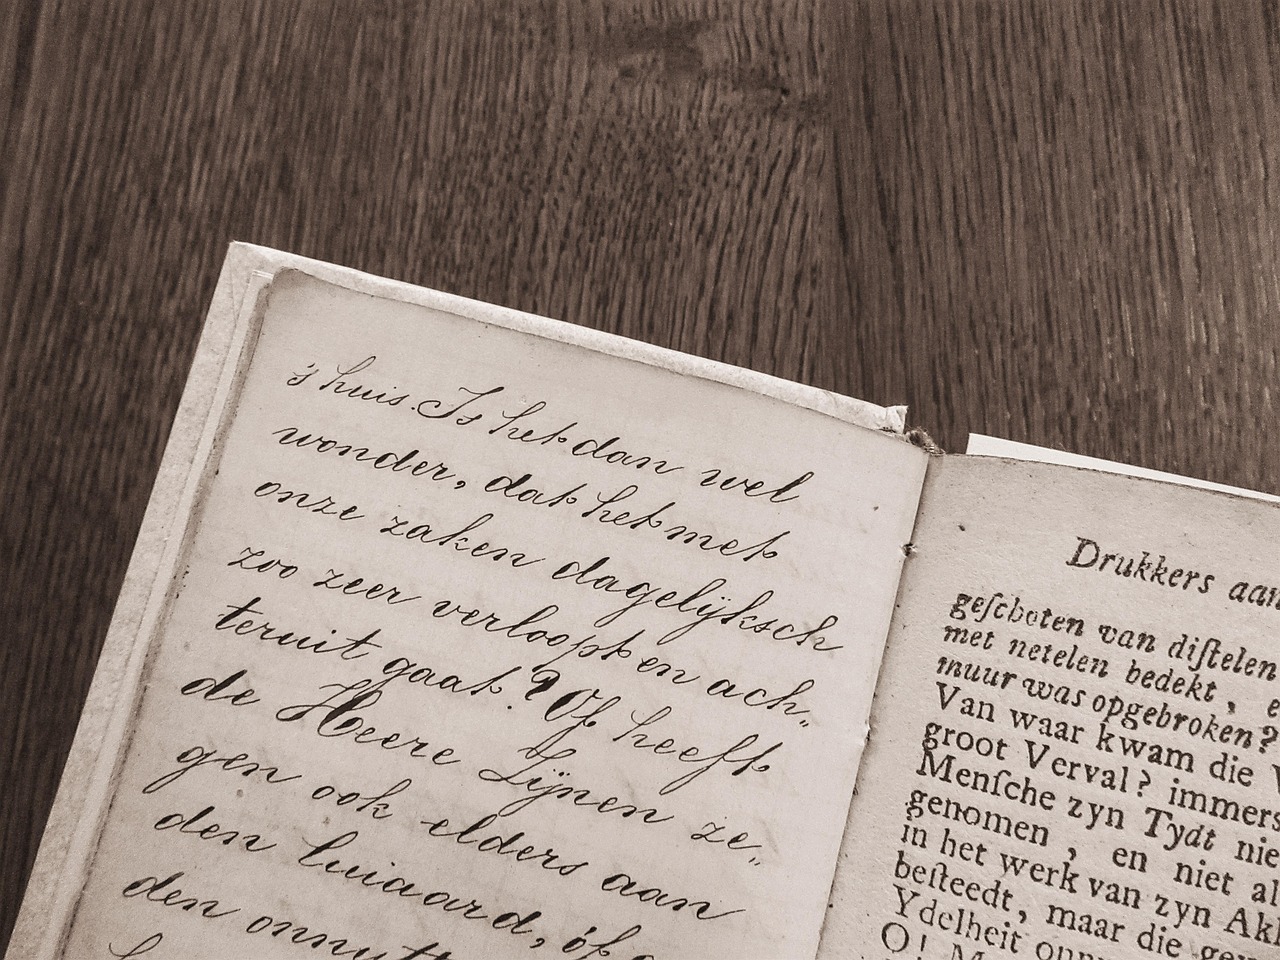 's huis. Is het dan wel
wonder, dat het met
onze zaken dagelijksch
zoo zeer verloopt en ach„
teruit gaat? Of heeft
de Heere Zijnen ze„
gen ook elders aan
den luiaard, óf
den
Drukkers aan
geſchoten van diſtelen
met netelen bedekt, e
muur was opgebroken?
Van waar kwam die V
groot Verval? immers
Menſche zyn Tydt nie
genomen, en niet al
in het werk van zyn Akk
beſteedt, maar die gew
Ydelheit onn
O!